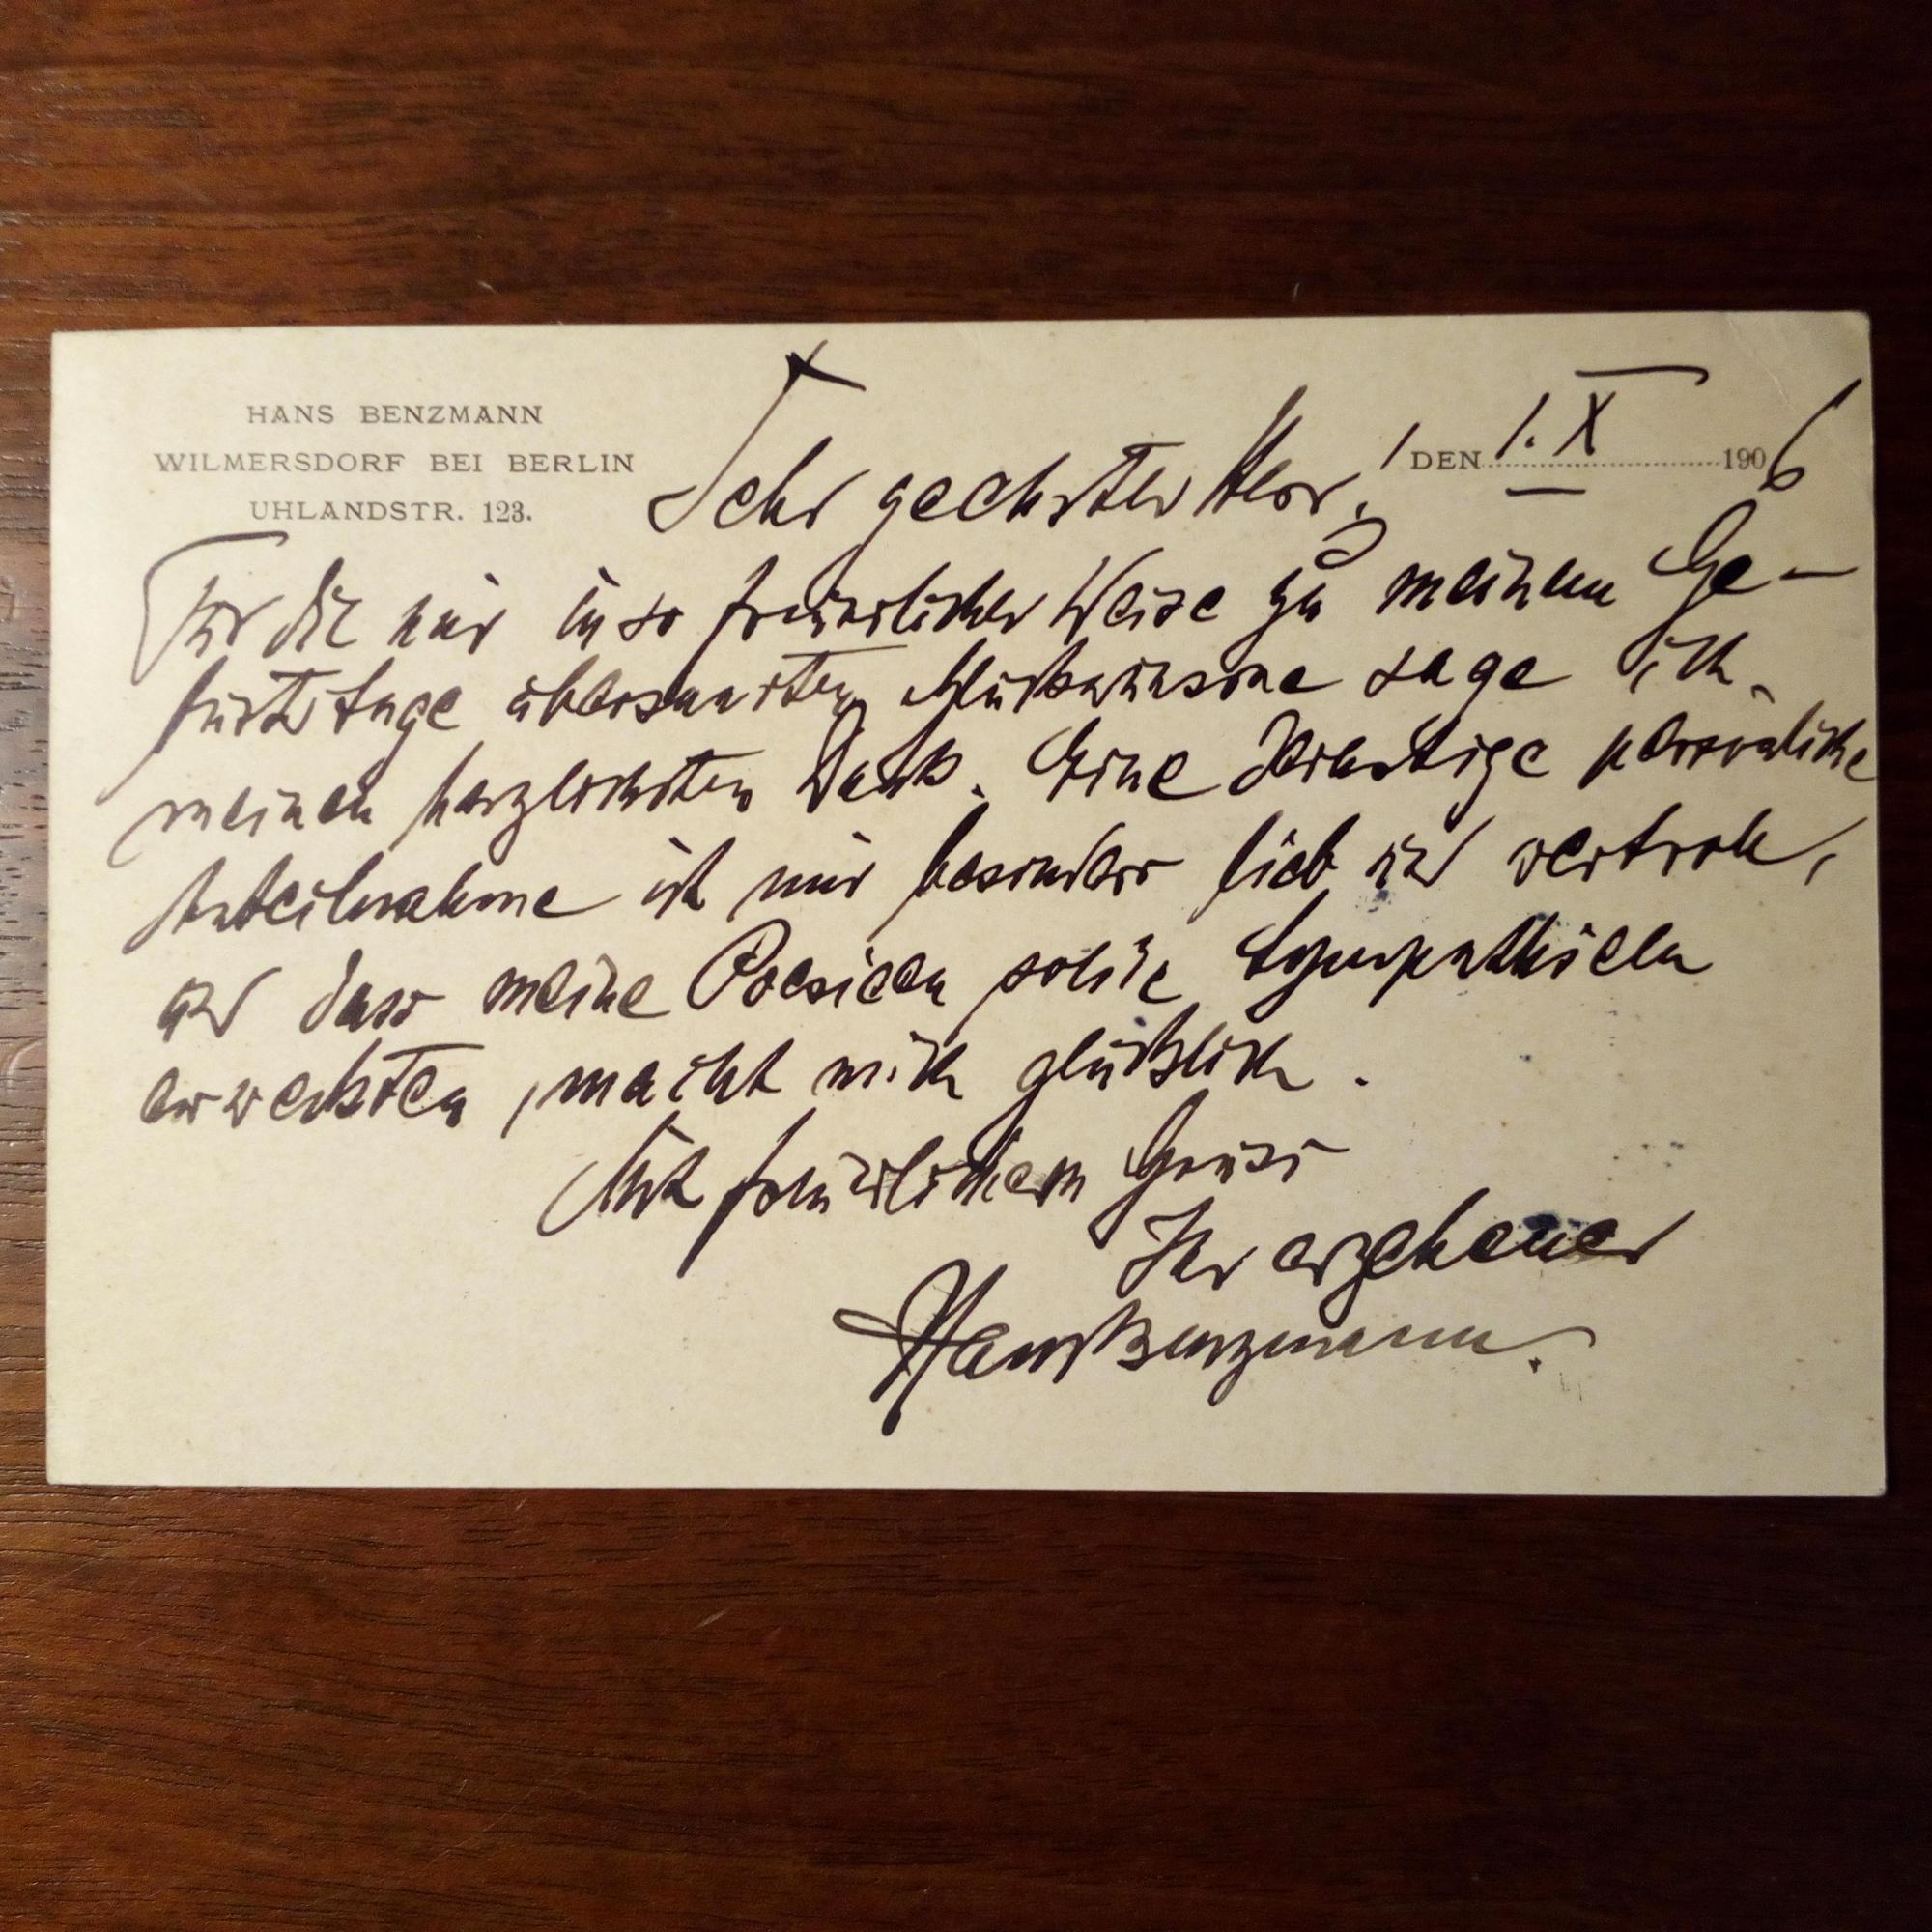 HANS BENZMANN
WILMERSDORF BEI BERLIN
UHLANDSTR. 123.
DEN 1. X 1906
Sehr geehrter Herr!
Für die mir in so freundlicher Weise zu meinem Ge-
burtstage übersandten Glückwünsche sage ich
meinen herzlichsten Dank. Eine derartige persönliche
Anteilnahme ist mir besonders lieb und wertvoll,
und dass meine Poesieen solche Sympathieen
erweckten, macht mich glücklich.
Mit freundlichem Gruss
Ihr ergebener
Hans Benzmann.